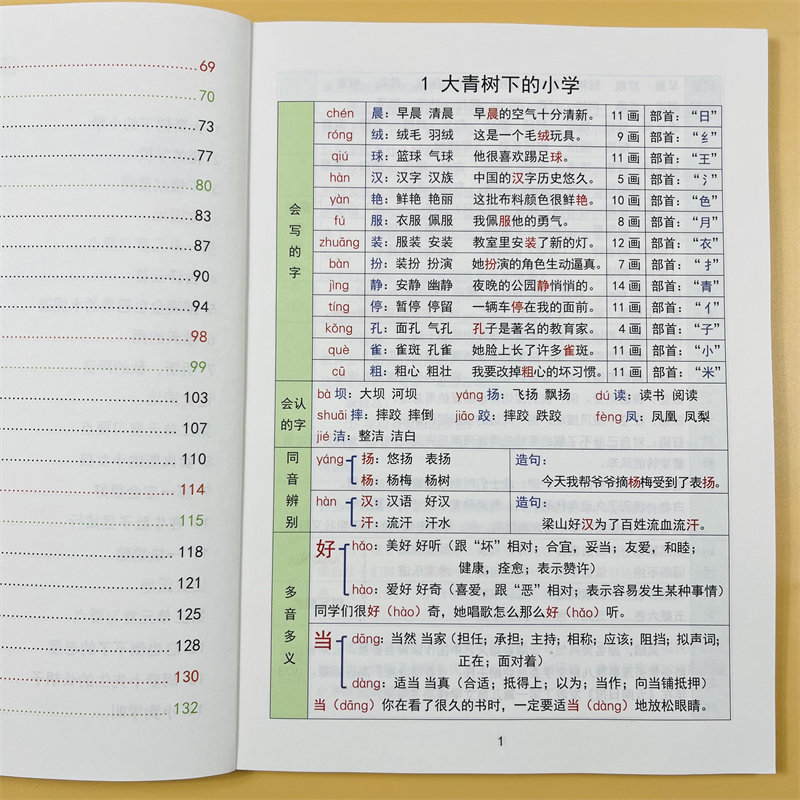 69
70
73
77
80
83
87
90
94
98
99
103
107
110
114
115
118
121
125
128
130
132
1 大青树下的小学
会写的字
chén 晨：早晨 清晨 早晨的空气十分清新。 11 画 部首：“日”
róng 绒：绒毛 羽绒 这是一个毛绒玩具。 9 画 部首：“纟”
qiú 球：篮球 气球 他很喜欢踢足球。 11 画 部首：“王”
hàn 汉：汉字 汉族 中国的汉字历史悠久。 5 画 部首：“氵”
yàn 艳：鲜艳 艳丽 这批布料颜色很鲜艳。 10 画 部首：“色”
fú 服：衣服 佩服 我佩服他的勇气。 8 画 部首：“月”
zhuāng 装：服装 安装 教室里安装了新的灯。 12 画 部首：“衣”
bàn 扮：装扮 扮演 她扮演的角色生动逼真。 7 画 部首：“扌”
jìng 静：安静 幽静 夜晚的公园静悄悄的。 14 画 部首：“青”
tíng 停：暂停 停留 一辆车停在我的面前。 11 画 部首：“亻”
kǒng 孔：面孔 气孔 孔子是著名的教育家。 4 画 部首：“子”
què 雀：雀斑 孔雀 她脸上长了许多雀斑。 11 画 部首：“小”
cū 粗：粗心 粗壮 我要改掉粗心的坏习惯。 11 画 部首：“米”
会认的字
bà 坝：大坝 河坝 yáng 扬：飞扬 飘扬 dú 读：读书 阅读
shuāi 摔：摔跤 摔倒 jiāo 跤：摔跤 跌跤 fèng 凤：凤凰 凤梨
jié 洁：整洁 洁白
同音辨别
yáng 扬：悠扬 表扬 造句：
杨：杨梅 杨树 今天我帮爷爷摘杨梅受到了表扬。
hàn 汉：汉语 好汉 造句：
汗：流汗 汗水 梁山好汉为了百姓流血流汗。
多音多义
好 hǎo：美好 好听（跟“坏”相对；合宜，妥当；友爱，和睦；
健康，痊愈；表示赞许）
hào：爱好 好奇（喜爱，跟“恶”相对；表示容易发生某种事情）
同学们很好（hào）奇，她唱歌怎么那么好（hǎo）听。
当 dāng：当然 当家（担任；承担；主持；相称；应该；阻挡；拟声词；
正在；面对着）
dàng：适当 当真（合适；抵得上；以为；当作；向当铺抵押）
当（dāng）你在看了很久的书时，一定要适当（dàng）地放松眼睛。
1